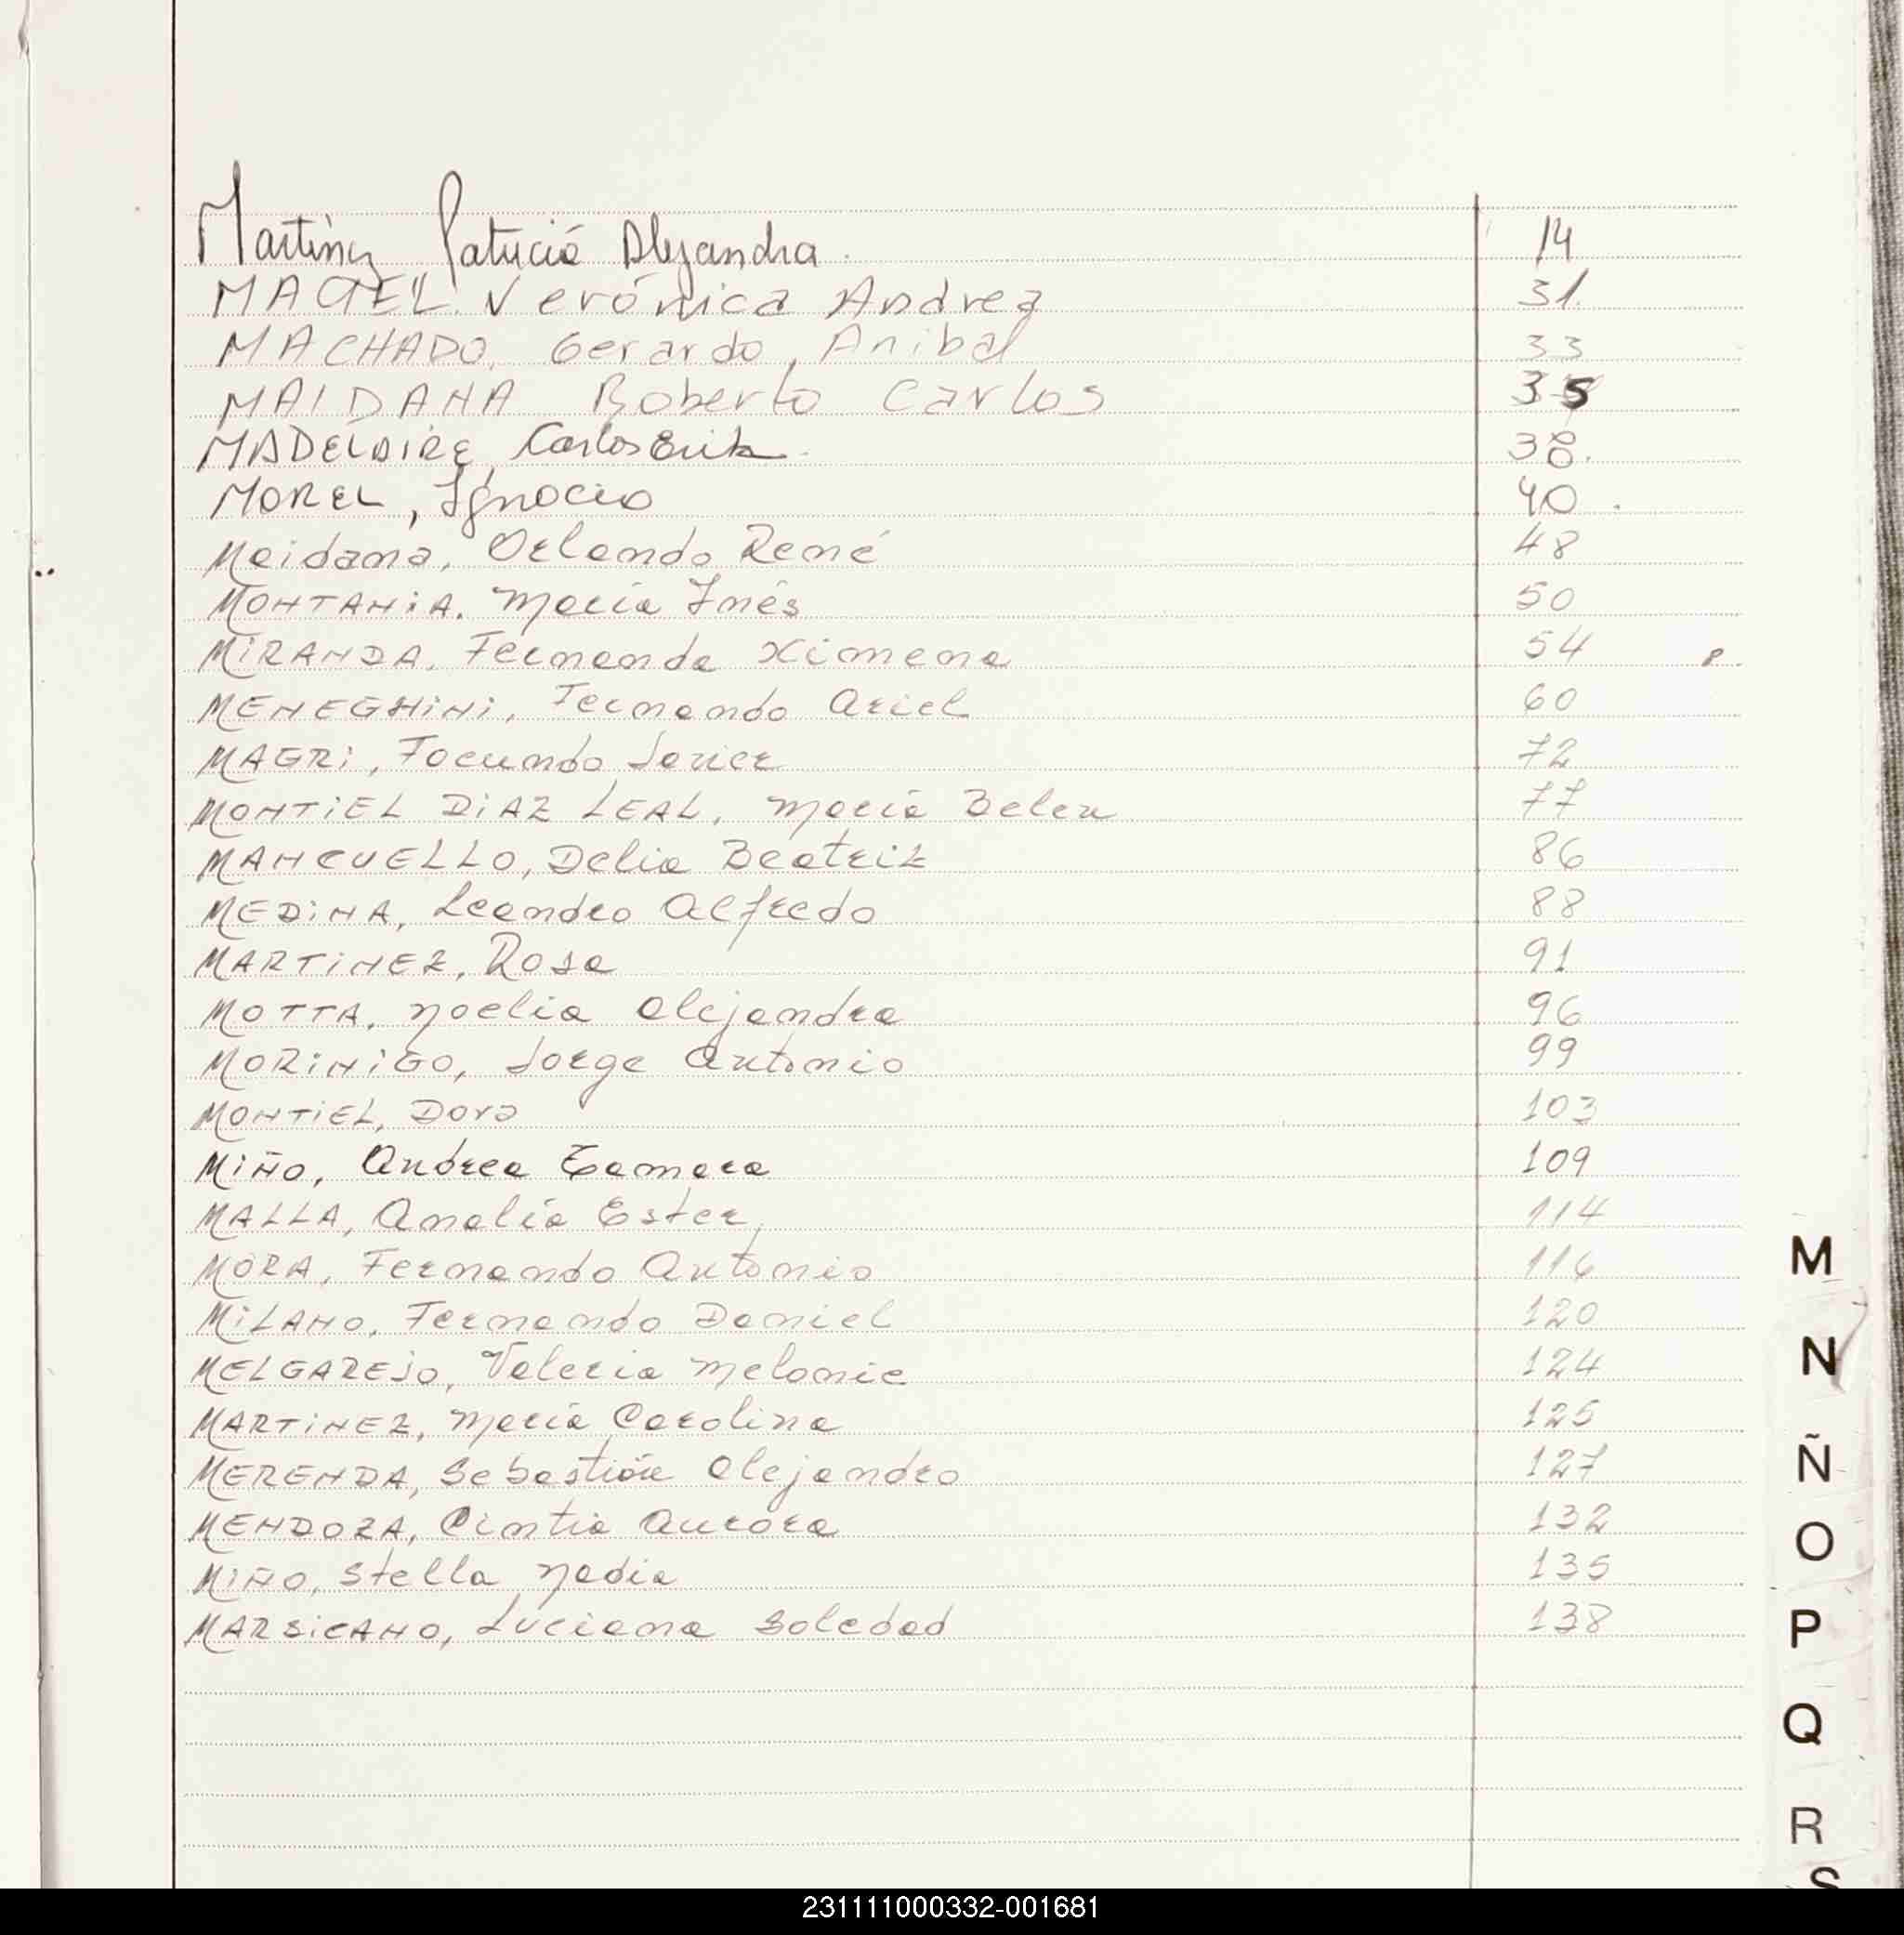 Martínez Patricia Alejandra. 14
MACIEL Verónica Andrea 31.
MACHADO, Gerardo, Anibal 33
MAIDANA Roberto Carlos 35
MADELAIRE, Carlos Erik. 38.
MOREL, Ignacio 40.
Maidana, Orlando René 48
MONTANIA, María Inés 50
MIRANDA, Fernanda Ximena 54
MENEGHINI, Fernando Ariel 60
MAGRI, Facundo Javier 72
MONTIEL DIAZ LEAL, María Belen 77
MANCUELLO, Delia Beatriz 86
MEDINA, Leandro Alfredo 88
MARTINEZ, Rosa 91
MOTTA, Noelia Alejandra 96
MORINIGO, Jorge Antonio 99
MONTIEL, Dora 103
MIÑO, Andrea Tamara 109
MALLA, Analía Ester 114
MORA, Fernando Antonio 116
MILANO, Fernando Daniel 120
MELGAREJO, Valeria Melanie 124
MARTINEZ, María Carolina 125
MERENDA, Sebastián Alejandro 127
MENDOZA, Cintia Aurora 132
MIÑO, Stella Nadia 135
MARSICANO, Luciana Soledad 138
M
N
Ñ
O
P
Q
R
S
231111000332-001681